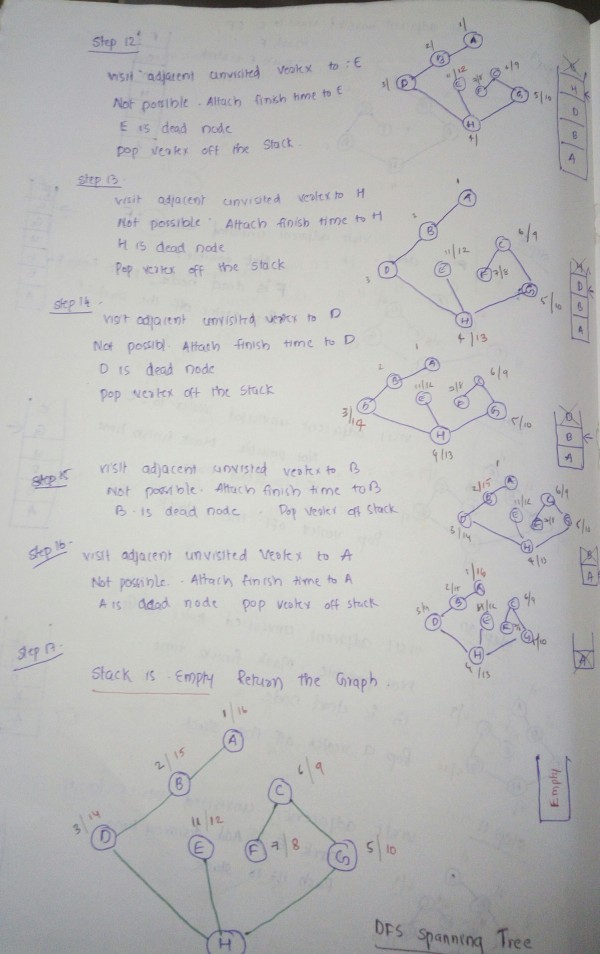 Step 12:
visit adjacent unvisited vertex to : E
Not possible. Attach finish time to E
E is dead node
pop vertex off the stack.
1/
A
2/
B
3/
D
11/12
E
7/8
F
C
6/9
G
5/10
H
4/
E
H
D
B
A
Step 13
visit adjacent unvisited vertex to H
Not possible. Attach finish time to H
H is dead node
Pop vertex off the stack
A
2
B
D
3
11/12
E
6/9
C
F
7/8
G
5/10
H
4/13
H
D
B
A
Step 14
visit adjacent unvisited vertex to D
Not possibl. Attach finish time to D
D is dead node
pop vertex off the stack
1
A
2
B
3/14
D
11/12
E
7/8
F
C
6/9
G
5/10
H
4/13
D
B
A
Step 15
visit adjacent unvisted vertex to B
Not possible. Attach finish time to B
B is dead node. Pop vertex off stack
1
A
2/15
B
D
3/14
11/12
E
6/9
C
G
H
4/13
B
A
Step 16
visit adjacent unvisited vertex to A
Not possible. Attach finish time to A
A is dead node pop vertex off stack
1/16
A
2/15
B
D
E
C
6/9
F
G
H
4/13
A
Step 17.
Stack is Empty Return the Graph.
1/16
A
2/15
B
3/14
D
11/12
E
6/9
C
F
7/8
G
5/10
H
Empty
DFS spanning Tree